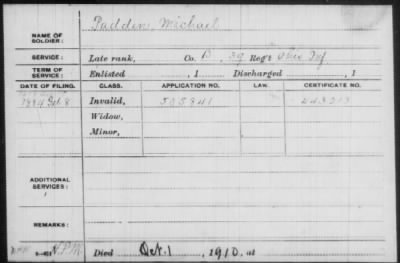 Padden, Michael
NAME OF SOLDIER:
SERVICE: Late rank, Co. B, 39 Reg't Ohio Inf
TERM OF SERVICE: Enlisted , 1 Discharged , 1
DATE OF FILING. CLASS. APPLICATION NO. LAW. CERTIFICATE NO.
1884 Feb 8 Invalid, 505841
Widow,
Minor,
ADDITIONAL SERVICES:
REMARKS:
Died Oct. 1, 1910, at